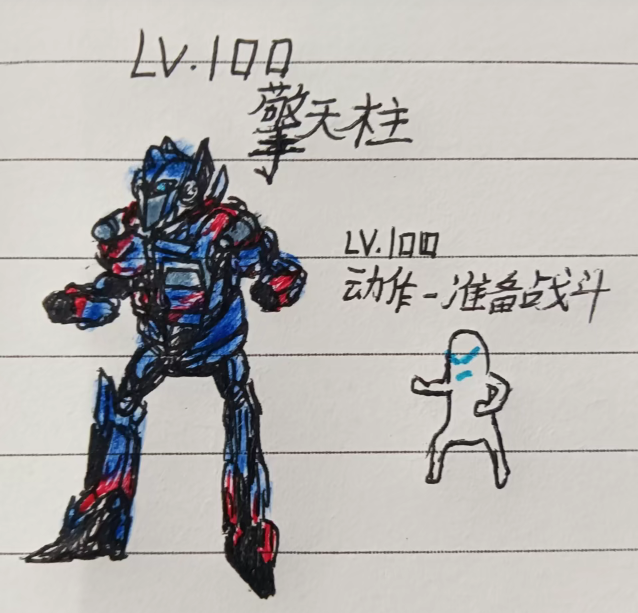 LV.100
擎天柱
LV.100
动作-准备战斗